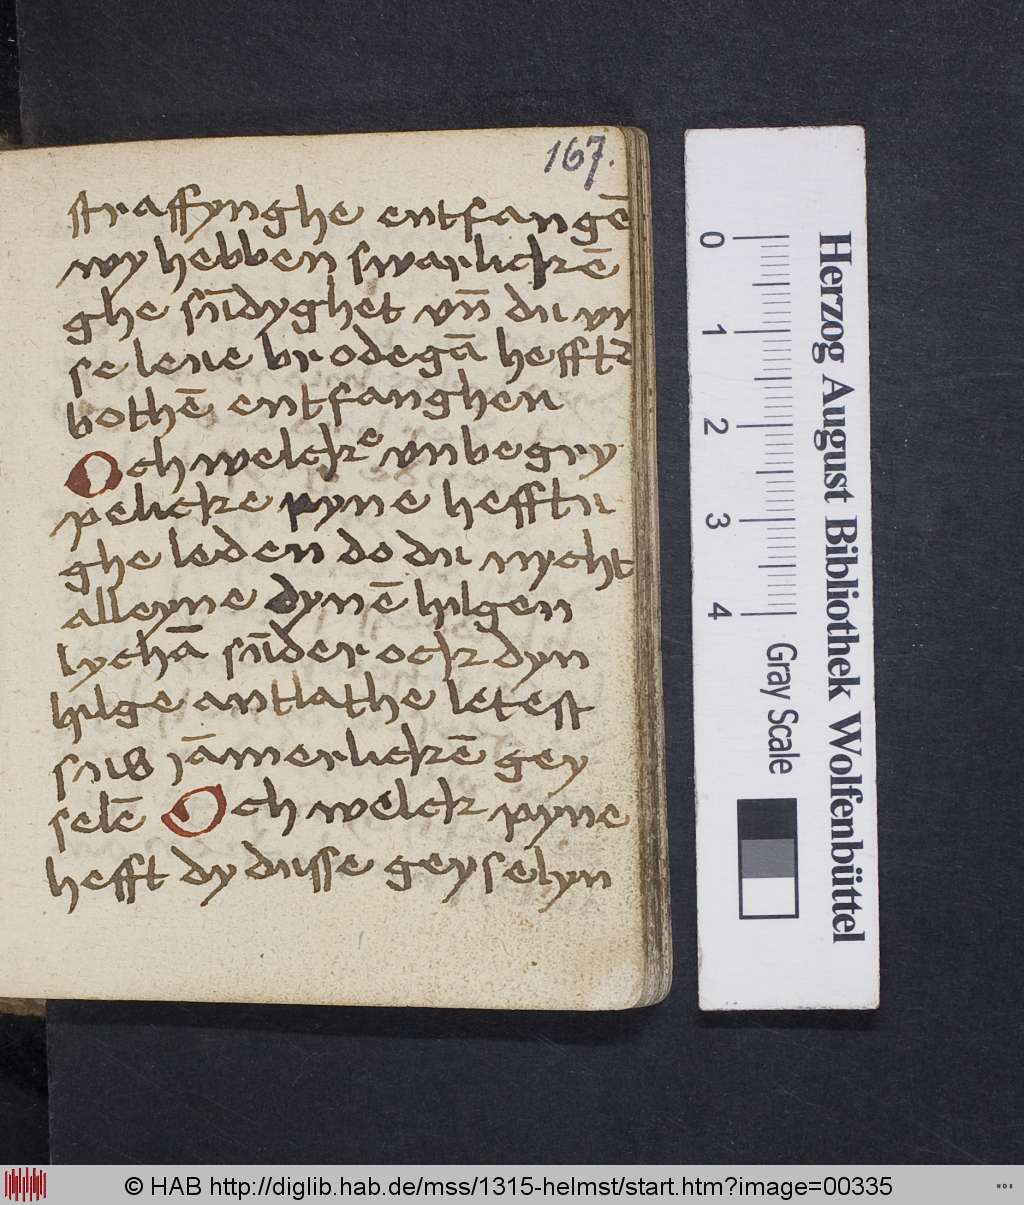 167.
straffynghe entfangē
wy hebben swarlickē
ghe sn̄dyghet vn̄ du vn
se leue brodegā hefftē
bothē entfanghen
Och welcke vnbegry
pelicke pyne hefftu
ghe leden do du nycht
alleyne dynē hilgen
lychā sūder ock dyn
hilge antlathe letest
sus iāmerlickē gey
selē Och welck pyne
hefft dy dusse geyselyn
Herzog August Bibliothek Wolfenbüttel
0 1 2 3 4 Gray Scale
© HAB http://diglib.hab.de/mss/1315-helmst/start.htm?image=00335